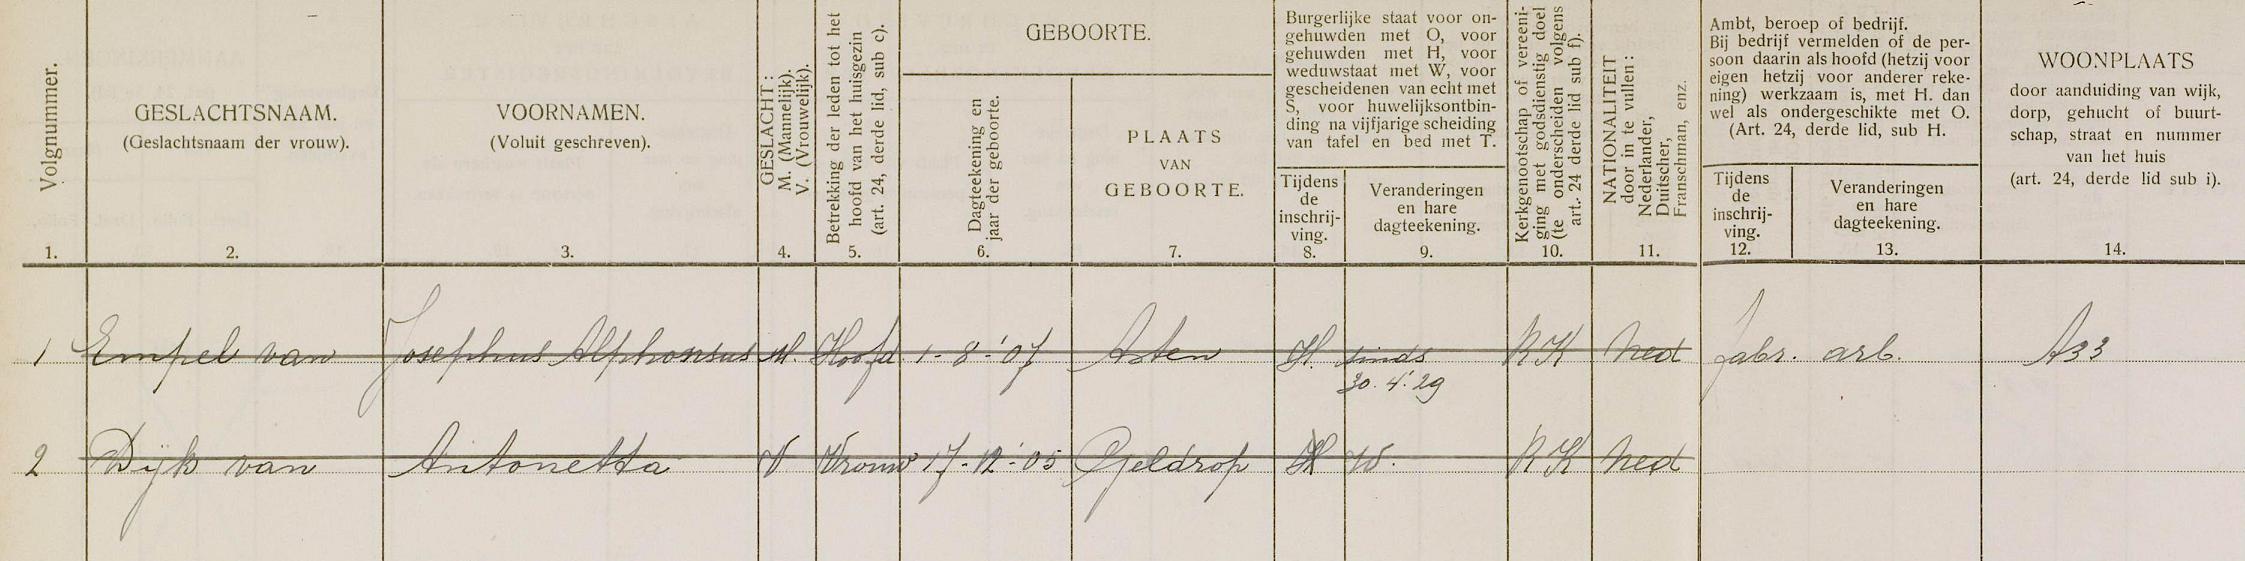 Volgnummer.
1.
GESLACHTSNAAM.
(Geslachtsnaam der vrouw).
2.
VOORNAMEN.
(Voluit geschreven).
3.
GESLACHT:
M. (Mannelijk).
V. (Vrouwelijk).
4.
Betrekking der leden tot het
hoofd van het huisgezin
(art. 24, derde lid, sub c).
5.
GEBOORTE.
Dagteekening en
jaar der geboorte.
6.
PLAATS
VAN
GEBOORTE.
7.
Burgerlijke staat voor on-
gehuwden met O, voor
gehuwden met H, voor
weduwstaat met W, voor
gescheidenen van echt met
S, voor huwelijksontbin-
ding na vijfjarige scheiding
van tafel en bed met T.
Tijdens
de
inschrij-
ving.
8.
Veranderingen
en hare
dagteekening.
9.
Kerkgenootschap of vereeni-
ging met godsdienstig doel
(te onderscheiden volgens
art. 24 derde lid sub f).
10.
NATIONALITEIT
door in te vullen:
Nederlander,
Duitscher,
Franschman, enz.
11.
Ambt, beroep of bedrijf.
Bij bedrijf vermelden of de per-
soon daarin als hoofd (hetzij voor
eigen hetzij voor anderer reke-
ning) werkzaam is, met H. dan
wel als ondergeschikte met O.
(Art. 24, derde lid, sub H.
Tijdens
de
inschrij-
ving.
12.
Veranderingen
en hare
dagteekening.
13.
WOONPLAATS
door aanduiding van wijk,
dorp, gehucht of buurt-
schap, straat en nummer
van het huis
(art. 24, derde lid sub i).
14.
1 Empel van Josephus Alphonsus M. Hoofd 1-8-'07 Asten H. sinds RK Ned fabr. arb. A33
30.4.'29
2 Dijk van Antonetta V Vrouw 17-12-'05 Geldrop H W. RK Ned